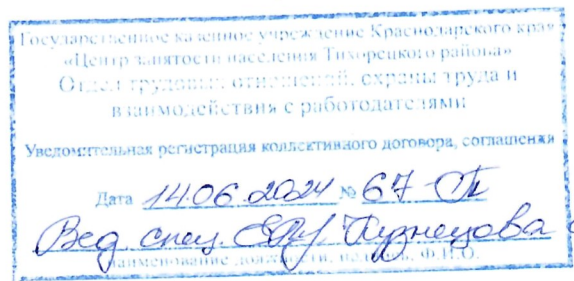 Государственное казенное учреждение Краснодарского края
«Центр занятости населения Тихорецкого района»
Отдел трудовых отношений, охраны труда и
взаимодействия с работодателями
Уведомительная регистрация коллективного договора, соглашения
Дата 14.06.2024 № 67-П
Вед. спец. Кузнецова
наименование должности, подпись, Ф.И.О.